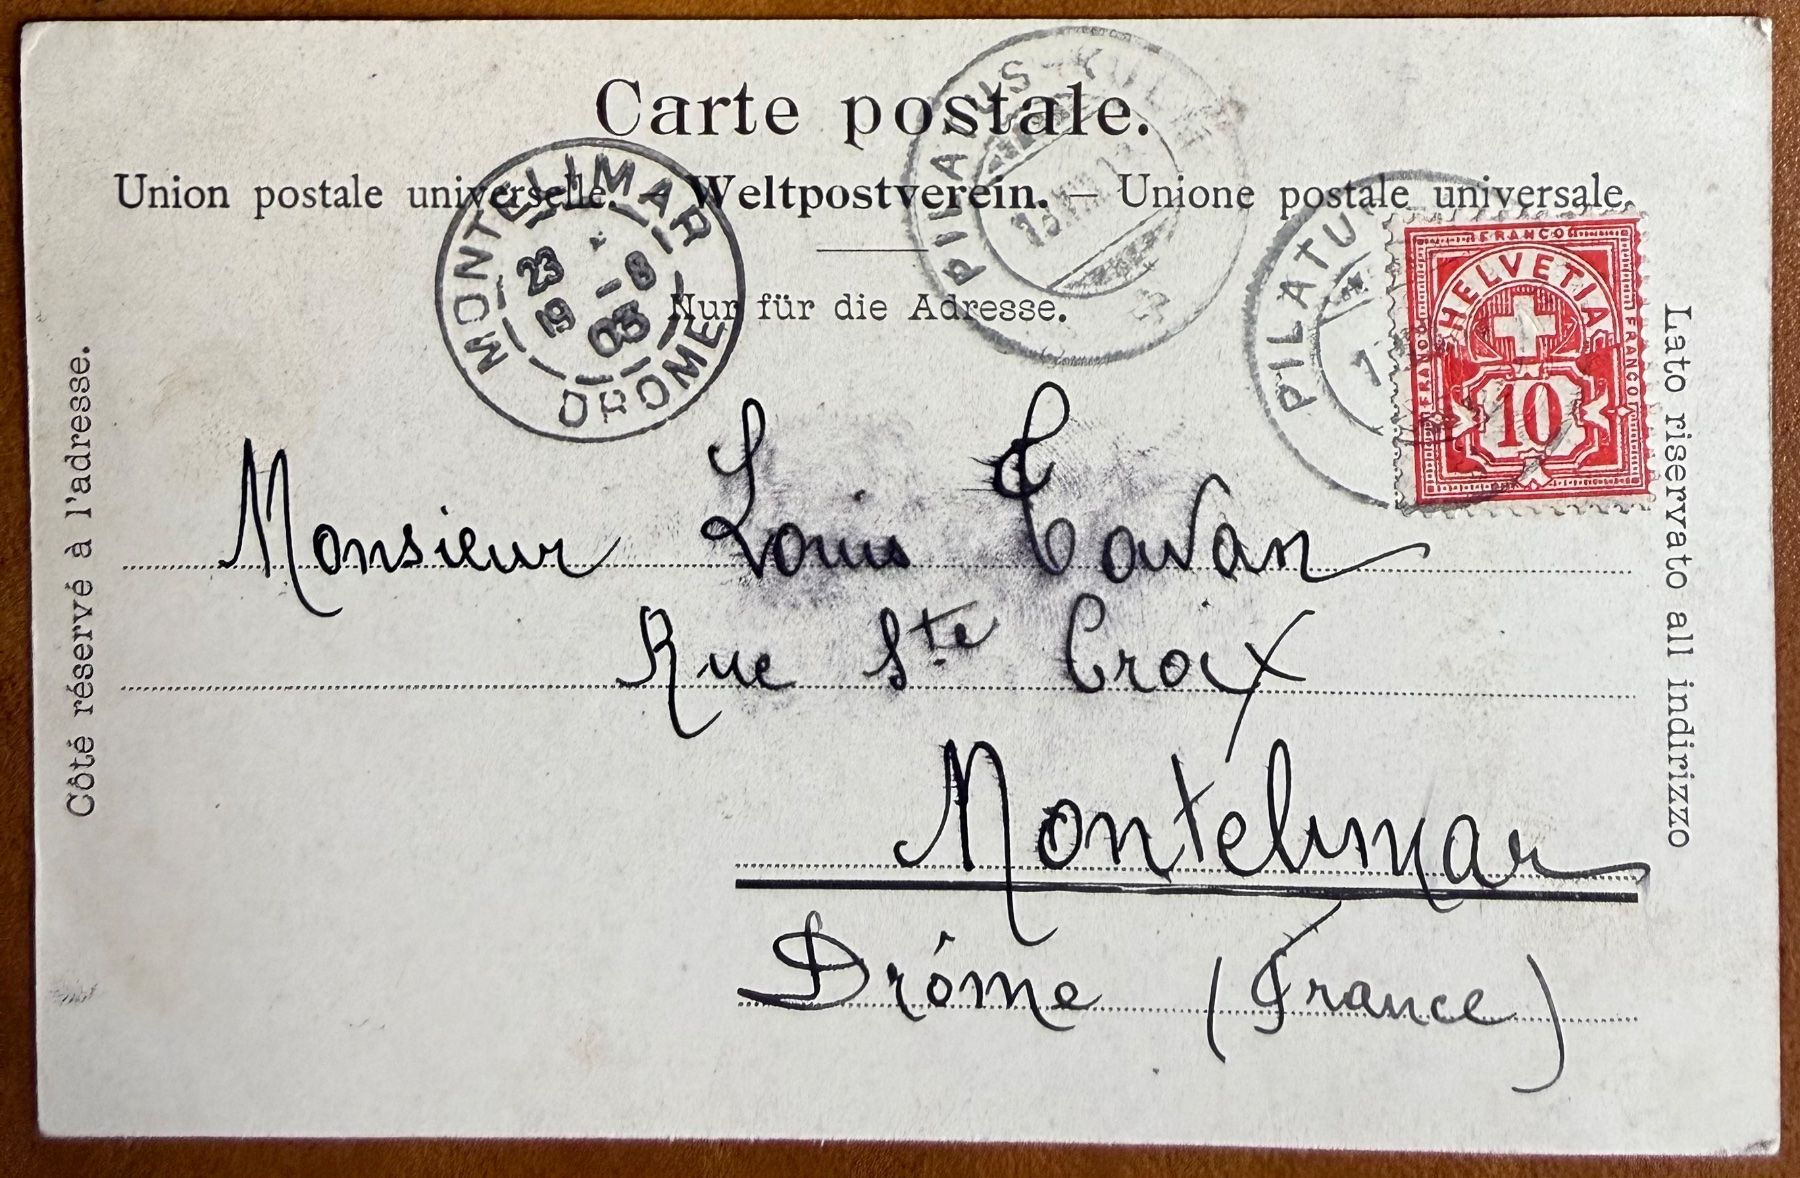 Carte postale.
Union postale universelle. — Weltpostverein. — Unione postale universale.
Nur für die Adresse.
Côté réservé à l'adresse.
Lato riservato all indirizzo
MONTELIMAR
23 -8
19 03
DROME
PILATUS-KULM
PILATU
FRANCO
FRANCO
FRANCO
HELVETIA
10
Monsieur Louis Tavan
Rue Ste Croix
Montélimar
Drôme (France)